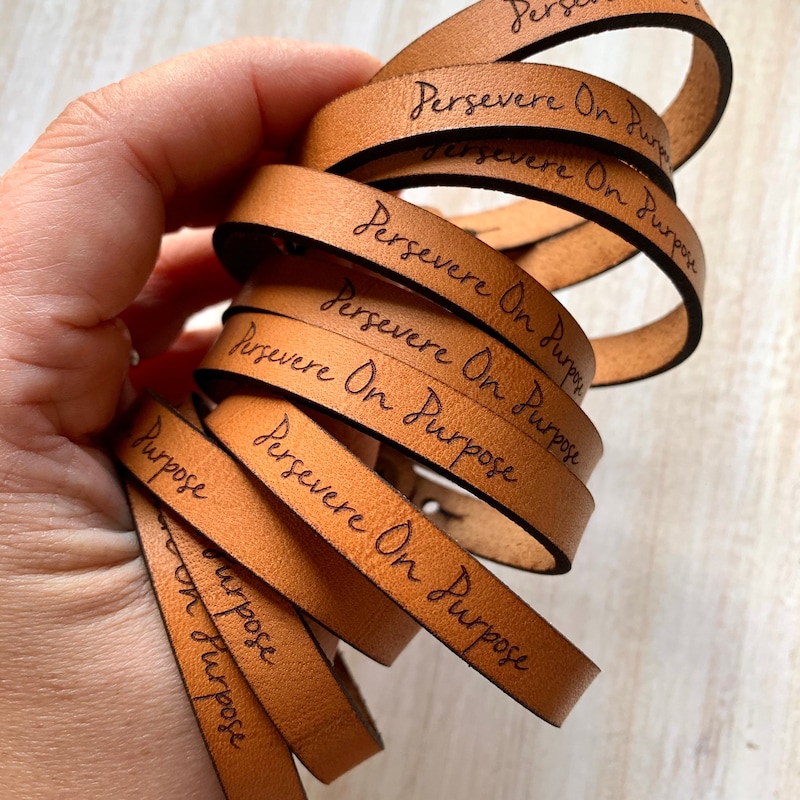 Persevere
Persevere On Purpose
Persevere On Purpose
Persevere On Purpose
Persevere On Purpose
Persevere On Purpose
Persevere On Purpose
Purpose
Purpose
On Purpose